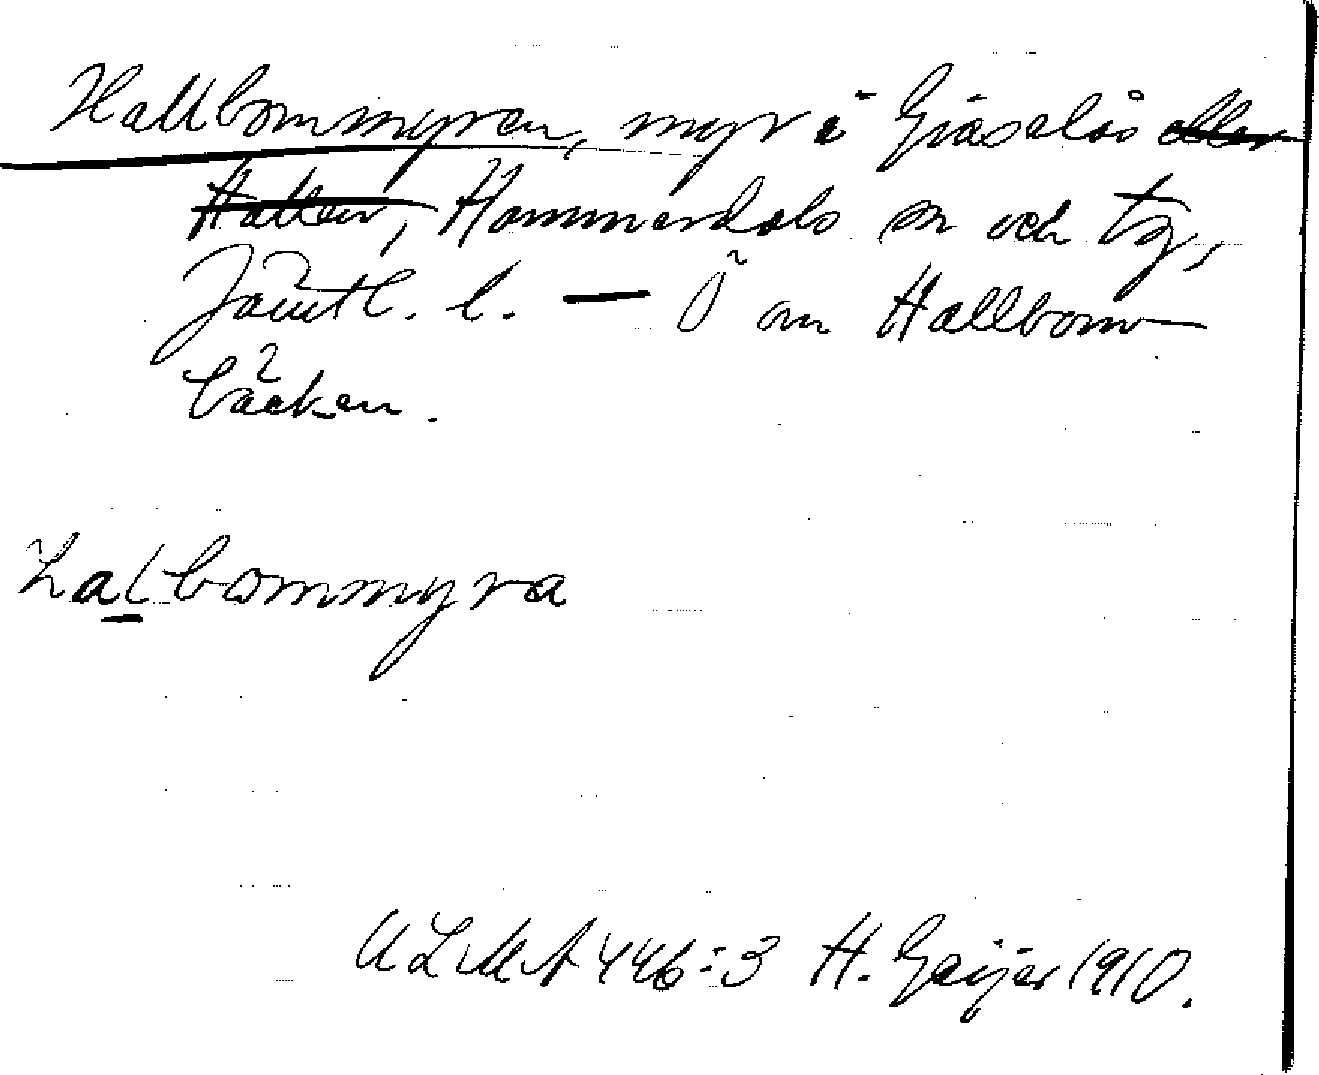 Hallbommyren, myr i Gisselås eller
Hallen, Hammerdals sn och tg,
Jämtl. l. — Ö om Hallbom-
bäcken.
Halbommyra
ULMA 446:3 H. Geijer 1910.